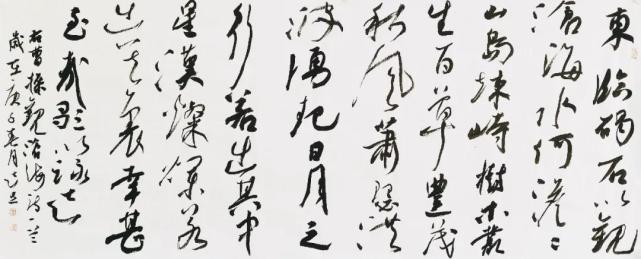 東臨碣石以觀
滄海水何澹〻
山島竦峙樹木叢
生百草豐茂
秋風蕭瑟洪
波湧起日月之
行若出其中
星漢燦爛若
出其裏幸甚
至哉歌以詠志
右曹操觀滄海詩一首
歲在庚子春月